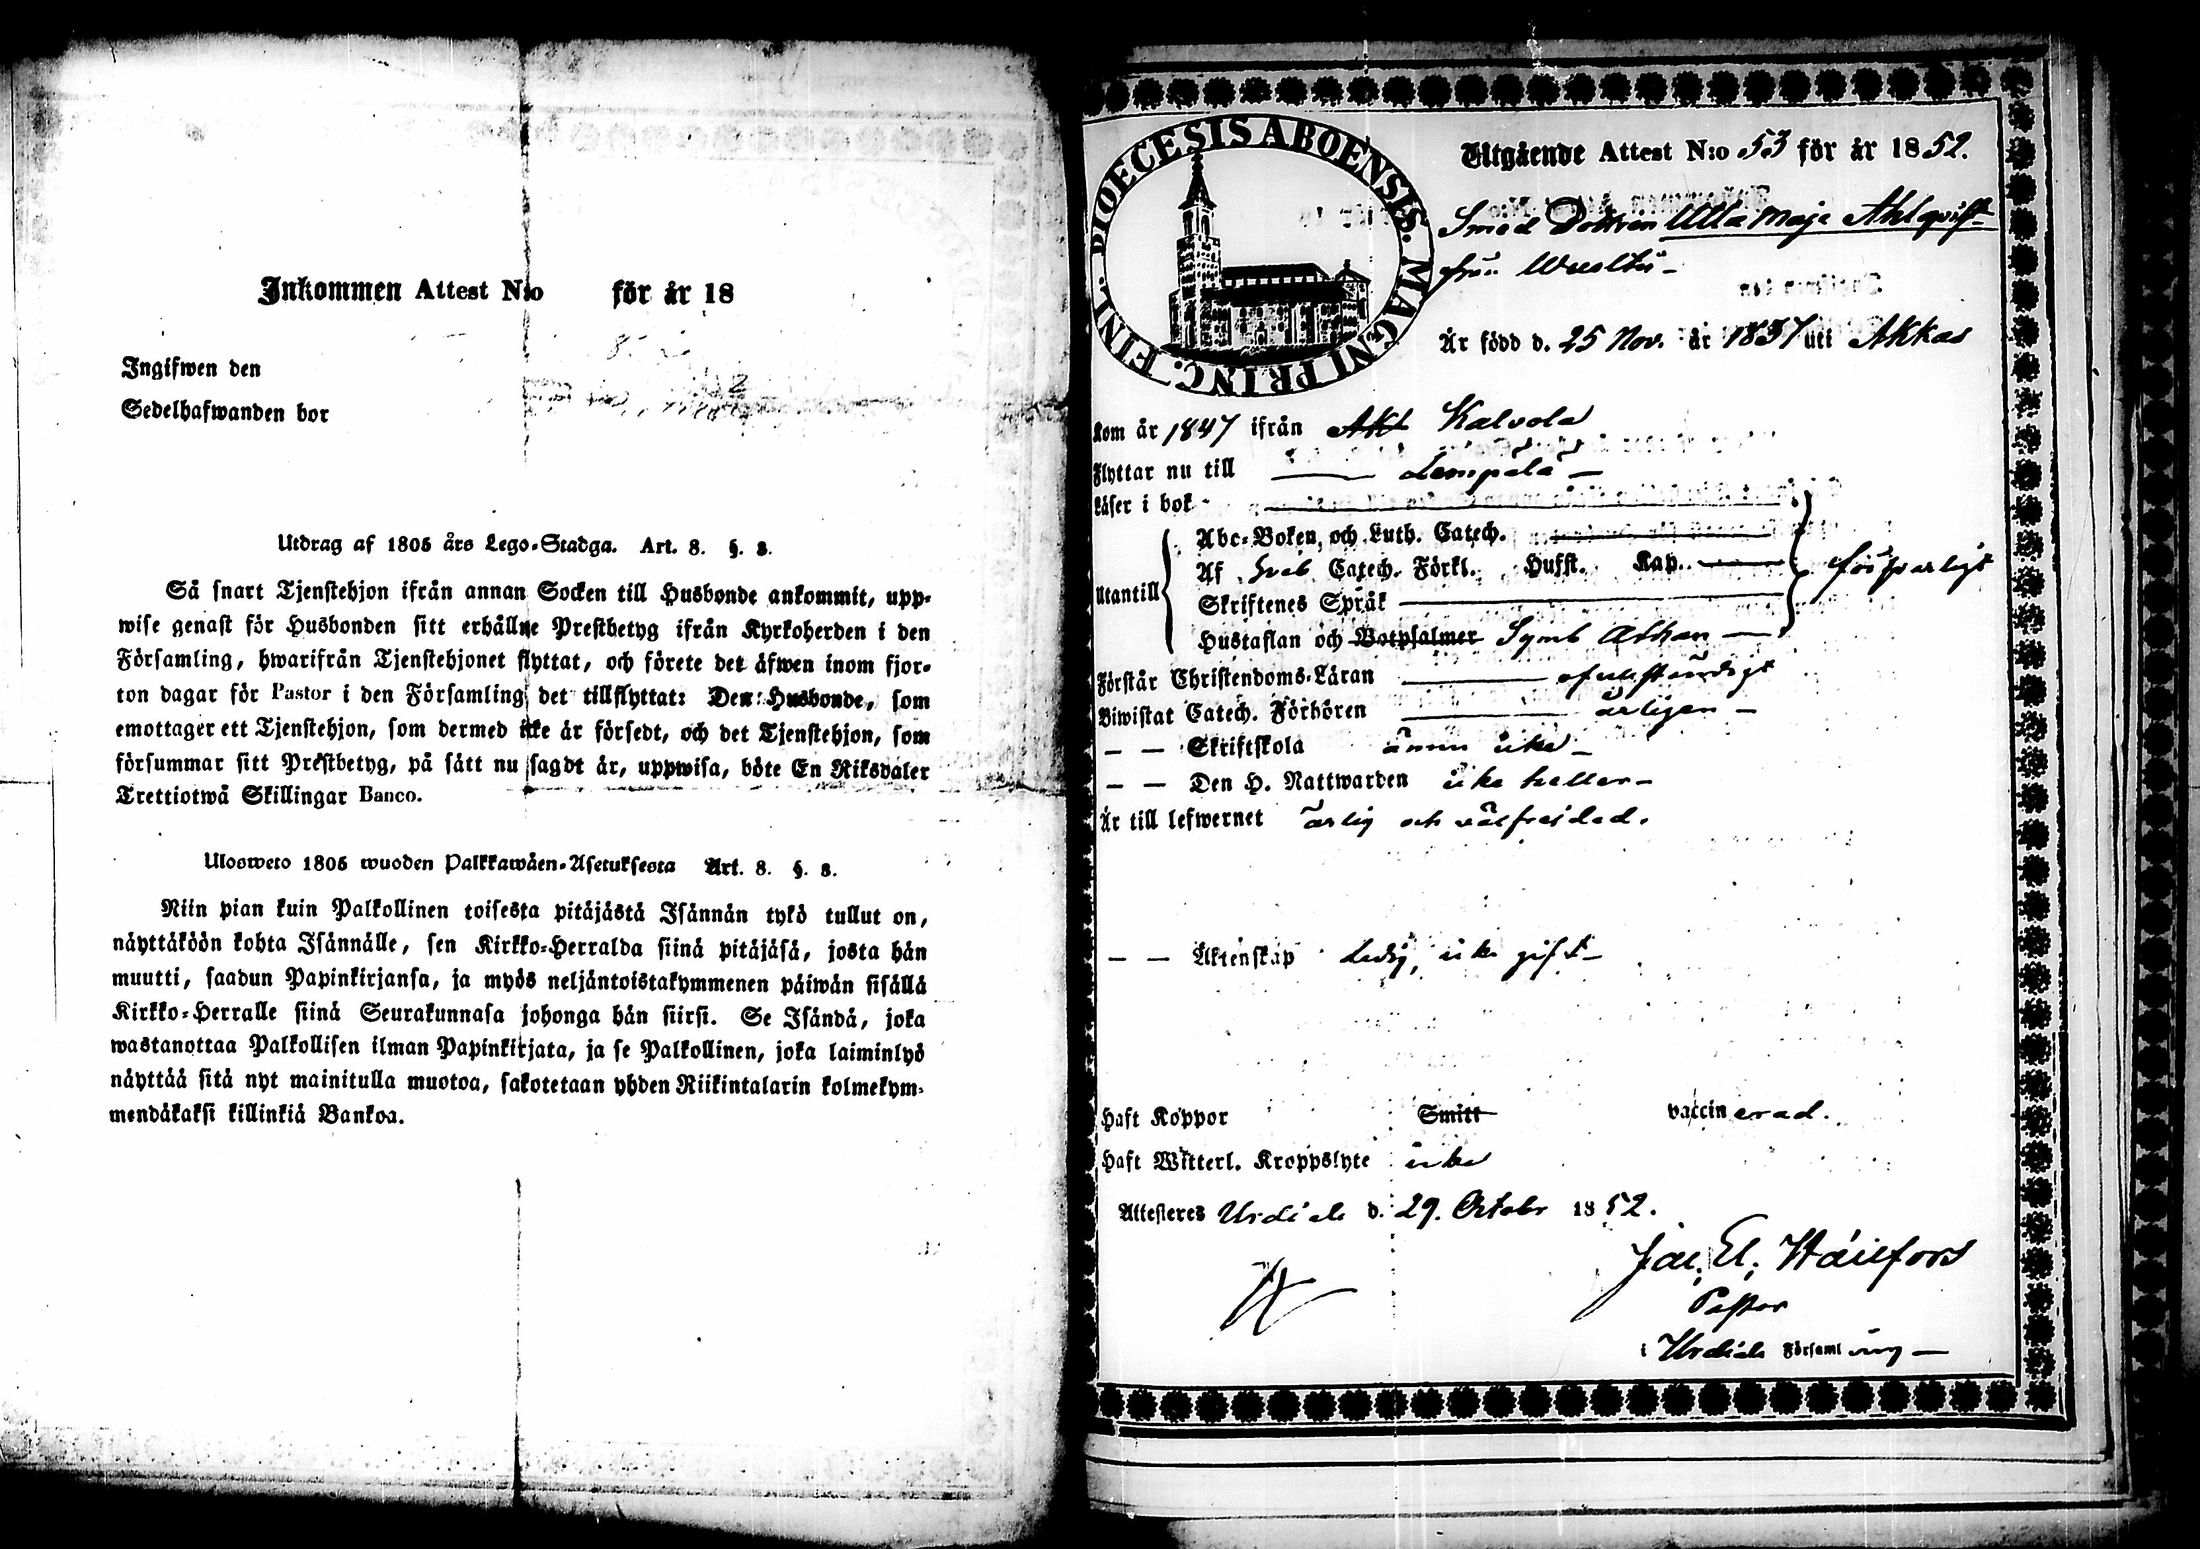 Inkommen Attest N:o för år 18
Ingifwen den
Sedelhafwanden bor
Utdrag af 1805 års Lego-Stadga. Art. 8. §. 3.
Så snart Tjenstehjon ifrån annan Socken till Husbonde ankommit, upp-
wise genast för Husbonden sitt erhållne Prestbetyg ifrån Kyrkoherden i den
Församling, hwarifrån Tjenstehjonet flyttat, och förete det äfwen inom fjor-
ton dagar för Pastor i den Församling det tillflyttat: Den Husbonde, som
emottager ett Tjenstehjon, som dermed icke är försedt, och det Tjenstehjon, som
försummar sitt Prestbetyg, på sätt nu sagdt är, uppwisa, böte En Riksdaler
Trettiotwå Skillingar Banco.
Ulosweto 1805 wuoden Palkkawäen-Asetuksesta Art. 8. §. 3.
Niin pian kuin Palkollinen toisesta pitäjästä Isännän tykö tullut on,
näyttäköön kohta Isännälle, sen Kirkko-Herralda siinä pitäjäsä, josta hän
muutti, saadun Papinkirjansa, ja myös neljäntoistakymmenen päiwän sisällä
Kirkko-Herralle siinä Seurakunnasa johonga hän siirsi. Se Isändä, joka
wastanottaa Palkollisen ilman Papinkirjata, ja se Palkollinen, joka laiminlyö
näyttää sitä nyt mainitulla muotoa, sakotetaan yhden Riikintalarin kolmekym-
mendäkaksi killinkiä Bankoa.
DIOECESIS ABOENSIS. MAGNI PRINC. FINL.
Utgående Attest N:o 53 för år 1852.
Smed Dottren Ulla Maja Ahlqvist
från
Är född d. 25 Nov. år 1837 uti Akkas
Kom år 1847 ifrån Akk Kalvola
Flyttar nu till Lempälä
Läser i bok
Utantill Abc-Boken, och Luth. Catech.
Af Sveb Catech. Förkl. Husst. Kap. försvarligt
Skriftenes Språk
Hustaflan och Botpsalmer Symb Athan
Förstår Christendoms-Läran ofullständigt
Biwistat Catech. Förhören årligen
— — Skriftskola ännu icke
— — Den H. Nattwarden icke heller
Är till lefwernet ärlig och välfrejdad.
— — Äktenskap Ledig, icke gift
Haft Koppor Smitt vaccinerad.
Haft Witterl. Kroppslyte icke
Attesteres Urdiala d. 29. Octobr 1852.
Jac. El. Hällfors
Pastor
i Urdiala Församling